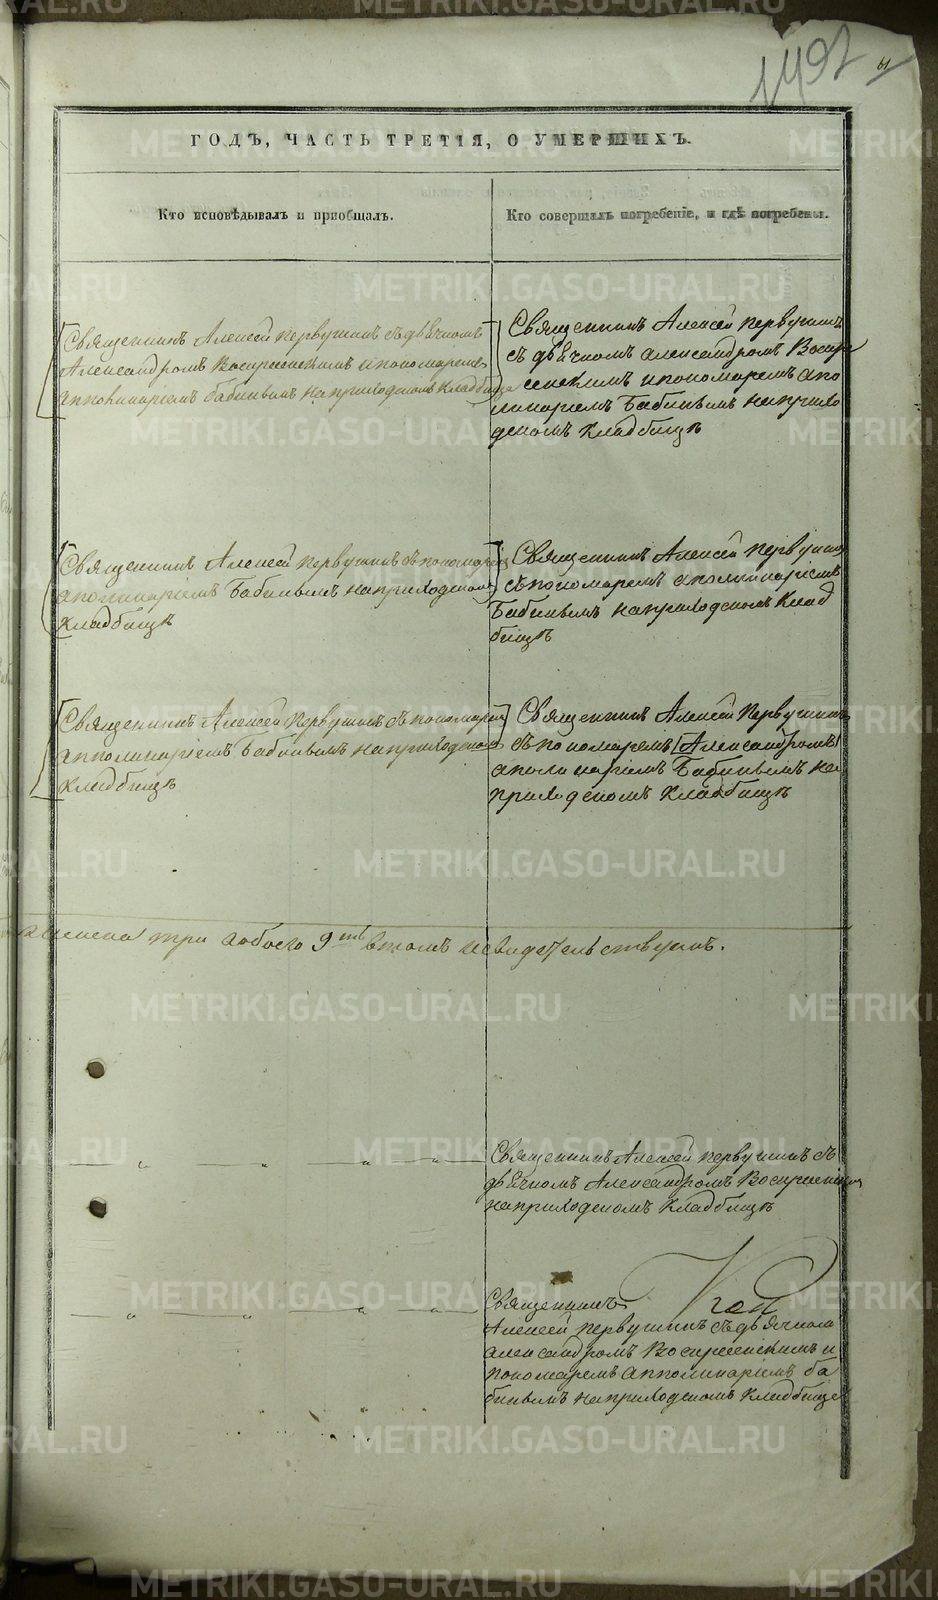 1492
61
ГОДЪ, ЧАСТЬ ТРЕТІЯ, О УМЕРШИХЪ.
Кто исповѣдывалъ и пріобщалъ.
Кто совершалъ погребеніе, и гдѣ погребены.
Священникъ Алексѣй Первушинъ съ дьячкомъ
Александромъ Воскресенскимъ и пономаремъ
Апполинаріемъ Бабинымъ на приходскомъ кладбище
Священникъ Алексѣй Первушинъ
съ дьячкомъ Александромъ Воскре
сенскимъ и пономаремъ Апо
линаріемъ Бабинымъ на прихо
дскомъ кладбищѣ
Священникъ Алексѣй Первушинъ съ пономаремъ
Аполинаріемъ Бабинымъ на приходскомъ
кладбищѣ
Священникъ Алексѣй Первушинъ
съ пономаремъ Аполинаріемъ
Бабинымъ на приходскомъ клад
бищѣ
Священникъ Алексѣй Первушинъ съ пономаремъ
Апполинаріемъ Бабинымъ на приходскомъ
кладбищѣ
Священникъ Алексѣй Первушинъ
съ пономаремъ [Александромъ]
Аполинаріемъ Бабинымъ на
приходскомъ кладбищѣ
три а обоего 9ть в томъ и свидетельствуемъ.
Священникъ Алексѣй Первушинъ съ
дьячкомъ Александромъ Воскресенскимъ
на приходскомъ кладбищѣ
Священникъ
Алексѣй Первушинъ съ дьячкомъ
Александромъ Воскресенскимъ и
пономаремъ Апполинаріемъ Ба
бинымъ на приходскомъ кладбище
METRIKI.GASO-URAL.RU